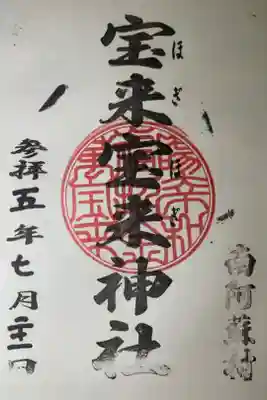 南阿蘇村
ほぎ ほぎ
宝来宝来神社
参拝五年七月二十一日